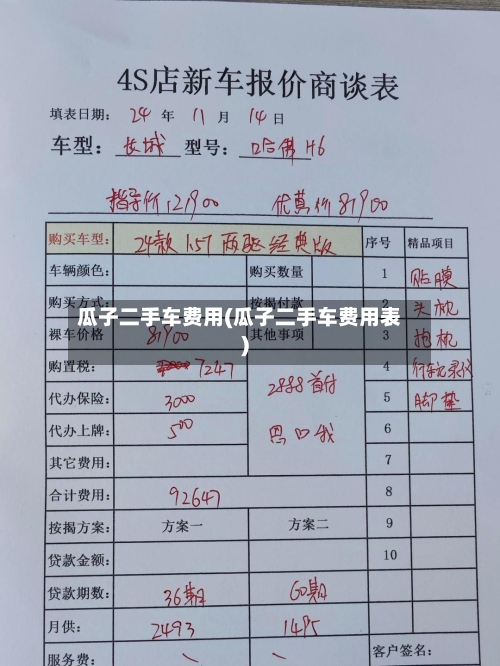 4S店新车报价商谈表
填表日期： 24 年 11 月 14 日
车型： 长城 型号： 哈佛 H6
指导价 121900 优惠价 81900
购买车型： 24款 1.5T 两驱 经典版 序号 精品项目
车辆颜色： 购买数量 1 贴膜
购买方式： 按揭付款 2 头枕
瓜子二手车费用(瓜子二手车费用表
)
裸车价格 81900 其他事项 3 抱枕
购置税： 7247 4 行车记录仪
2888 首付
代办保险： 3000 5 脚垫
代办上牌： 500 6
其它费用： 7
合计费用： 92647 8
按揭方案： 方案一 方案二 9
贷款金额： 10
贷款期数： 36期 60期
月供： 2493 1495
服务费： 客户签名：